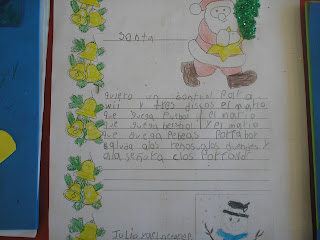 Santa
quiero un
wii y tres discos el mario
que juega futbol y el mario
que juega beisbol y el mario
que juega peleas Porfabor
saluda alos renos alos duendes y
ala señora clos Porfavor
Julio